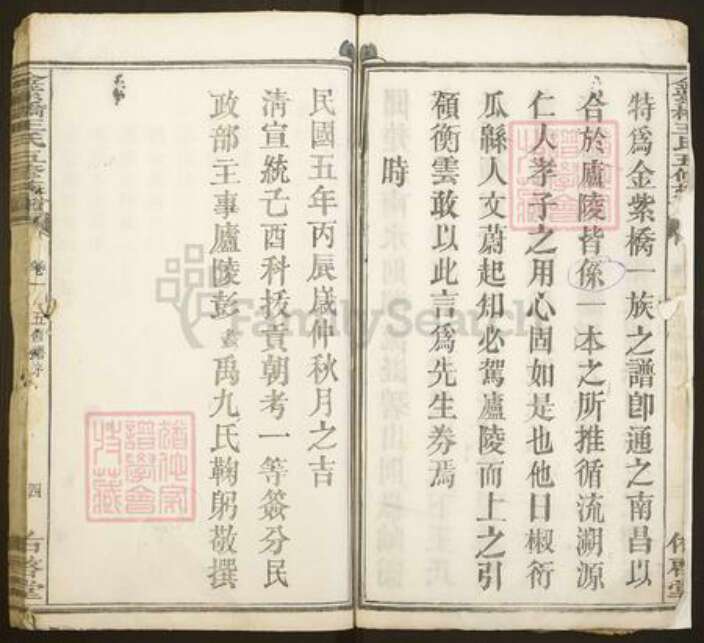 特爲金紫橋一族之譜卽通之南昌以
合於廬陵皆係一本之所推循流溯源
仁人孝子之用心固如是也他日椒衍
瓜緜人文蔚起知必駕廬陵而上之引
領衡雲敢以此言爲先生券焉
時
民國五年丙辰嵗仲秋月之吉
淸宣統己酉科拔貢朝考一等簽分民
政部主事廬陵彭禹九氏鞠躬敬撰
卷一
五修譜序
四
FamilySearch